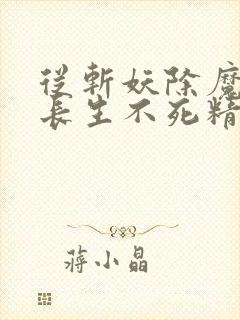 從斬妖除魔
長生不死精
蔣小晶